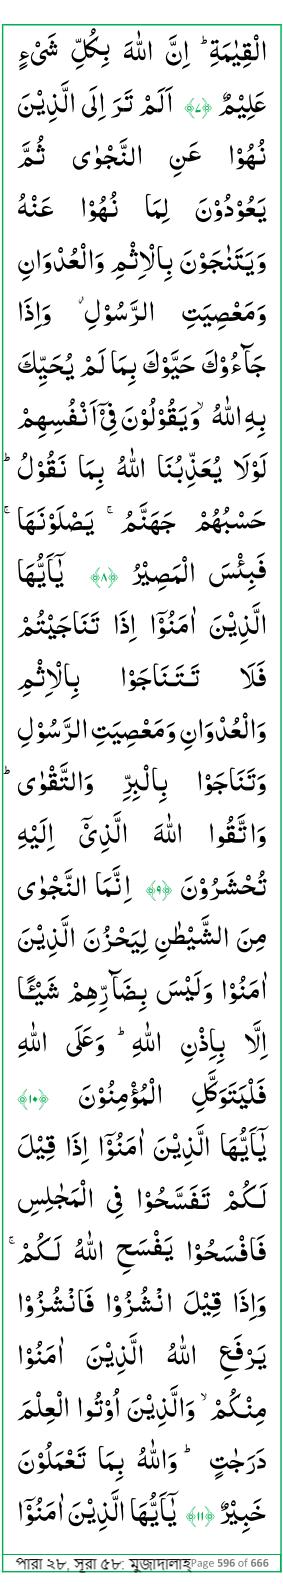 الْقِيٰمَةِ ؕ اِنَّ اللّٰهَ بِكُلِّ شَیْءٍ
عَلِيْمٌ ﴿۷﴾ اَلَمْ تَرَ اِلَى الَّذِيْنَ
نُهُوْا عَنِ النَّجْوٰى ثُمَّ
يَعُوْدُوْنَ لِمَا نُهُوْا عَنْهُ
وَيَتَنٰجَوْنَ بِالْاِثْمِ وَالْعُدْوَانِ
وَمَعْصِيَتِ الرَّسُوْلِ ۫ وَاِذَا
جَآءُوْكَ حَيَّوْكَ بِمَا لَمْ يُحَيِّكَ
بِهِ اللّٰهُ ۙ وَيَقُوْلُوْنَ فِیْۤ اَنْفُسِهِمْ
لَوْلَا يُعَذِّبُنَا اللّٰهُ بِمَا نَقُوْلُ ؕ
حَسْبُهُمْ جَهَنَّمُ ۚ يَصْلَوْنَهَا ۚ
فَبِئْسَ الْمَصِيْرُ ﴿۸﴾ يٰۤاَيُّهَا
الَّذِيْنَ اٰمَنُوْۤا اِذَا تَنَاجَيْتُمْ
فَلَا تَتَنَاجَوْا بِالْاِثْمِ
وَالْعُدْوَانِ وَمَعْصِيَتِ الرَّسُوْلِ
وَتَنَاجَوْا بِالْبِرِّ وَالتَّقْوٰى ؕ
وَاتَّقُوا اللّٰهَ الَّذِیْۤ اِلَيْهِ
تُحْشَرُوْنَ ﴿۹﴾ اِنَّمَا النَّجْوٰى
مِنَ الشَّيْطٰنِ لِيَحْزُنَ الَّذِيْنَ
اٰمَنُوْا وَلَيْسَ بِضَآرِّهِمْ شَيْـًٔا
اِلَّا بِاِذْنِ اللّٰهِ ؕ وَعَلَى اللّٰهِ
فَلْيَتَوَكَّلِ الْمُؤْمِنُوْنَ ﴿۱۰﴾
يٰۤاَيُّهَا الَّذِيْنَ اٰمَنُوْۤا اِذَا قِيْلَ
لَـكُمْ تَفَسَّحُوْا فِى الْمَجٰلِسِ
فَافْسَحُوْا يَفْسَحِ اللّٰهُ لَـكُمْ ۚ
وَاِذَا قِيْلَ انْشُزُوْا فَانْشُزُوْا
يَرْفَعِ اللّٰهُ الَّذِيْنَ اٰمَنُوْا
مِنْكُمْ ۙ وَالَّذِيْنَ اُوْتُوا الْعِلْمَ
دَرَجٰتٍ ؕ وَاللّٰهُ بِمَا تَعْمَلُوْنَ
خَبِيْرٌ ﴿۱۱﴾ يٰۤاَيُّهَا الَّذِيْنَ اٰمَنُوْۤا
পারা ২৮, সূরা ৫৮: মুজাদালাহ Page 596 of 666